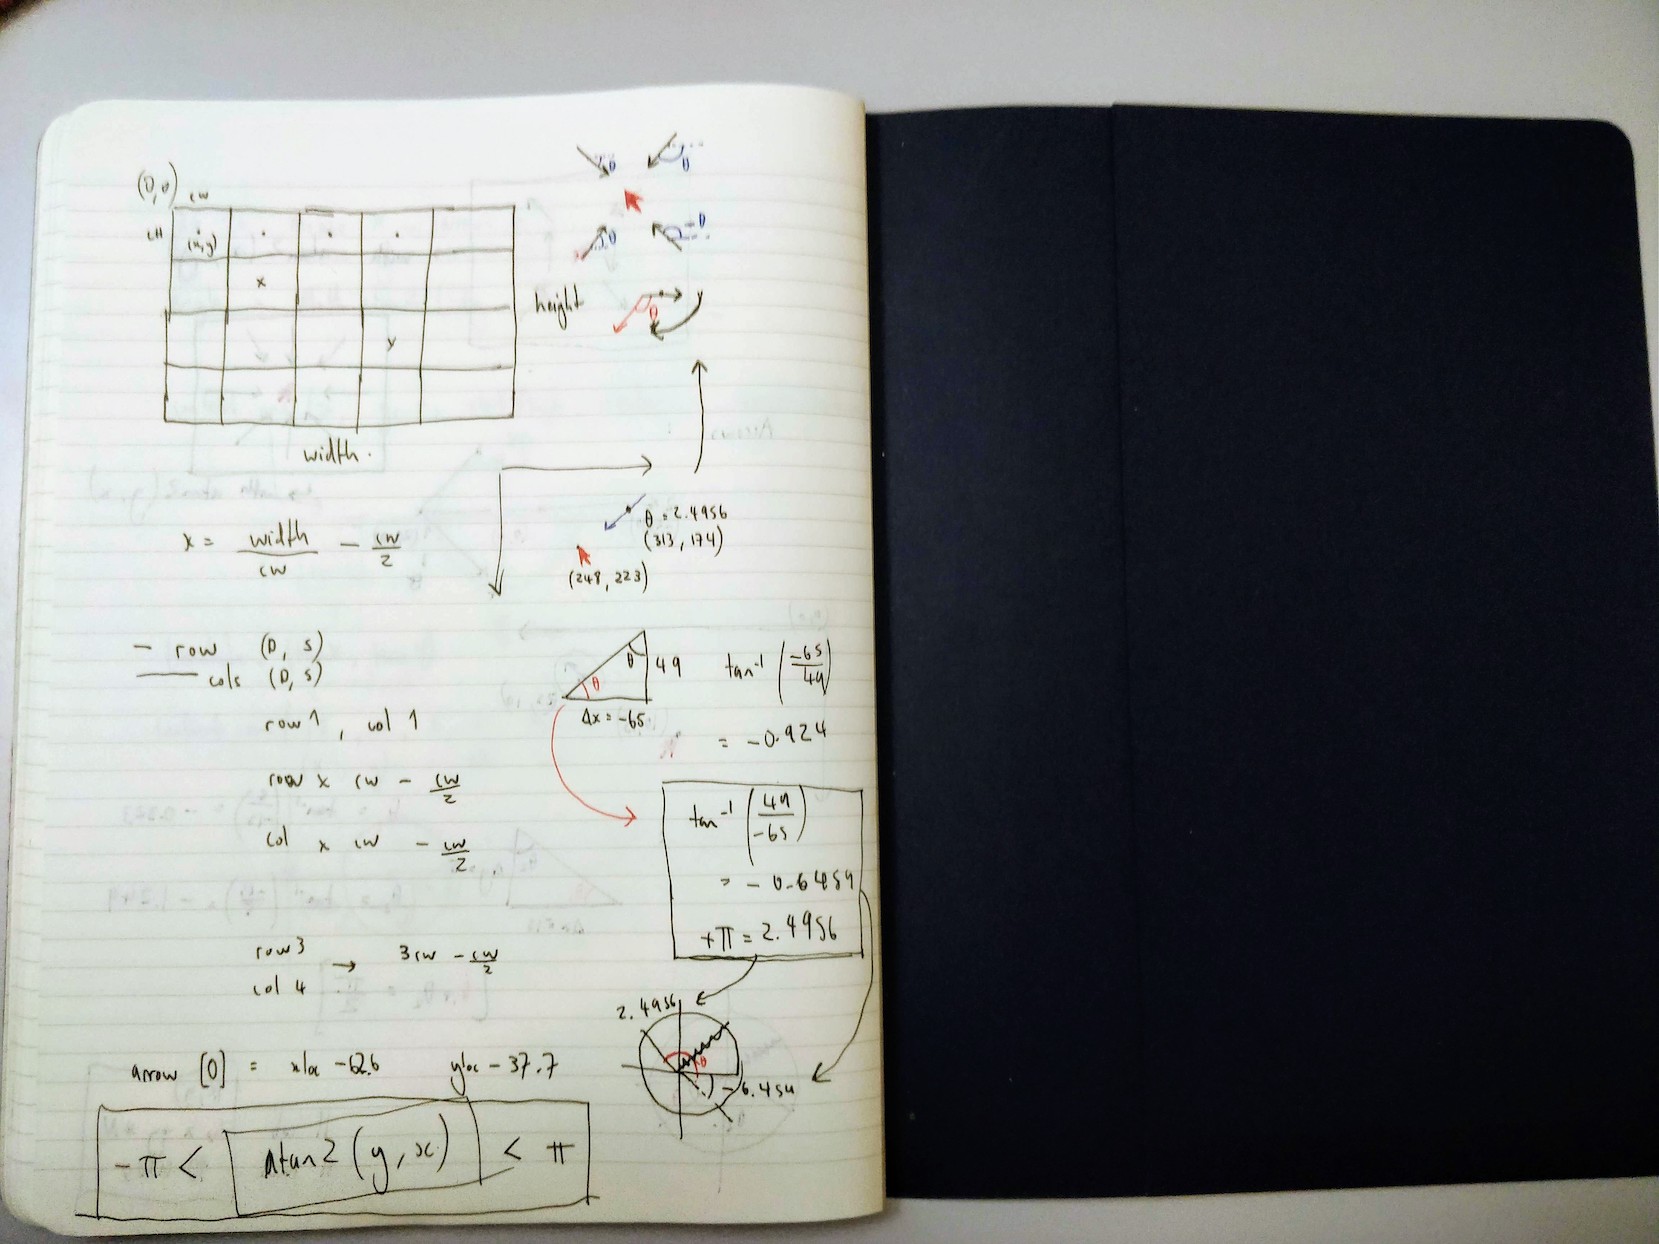 (0,0) cw
cH
(x,y)
x
x
height
width.
θ
θ
θ
-θ
θ
x = width/cw - cw/2
θ = 2.4956
(313, 174)
(248, 223)
- row (0, 5)
cols (0, 5)
row 1, col 1
row x cw - cw/2
col x cw - cw/2
row 3
col 4 → 3cw - cw/2
θ
θ
49
Δx = -65
tan⁻¹ (-65/49)
= -0.924
tan⁻¹ (49/-65)
= -0.6454
+π = 2.4956
2.4956
θ
-6.454
arrow [0] = xloc -62.6 yloc -37.7
-π < Atan2 (y, x) < π